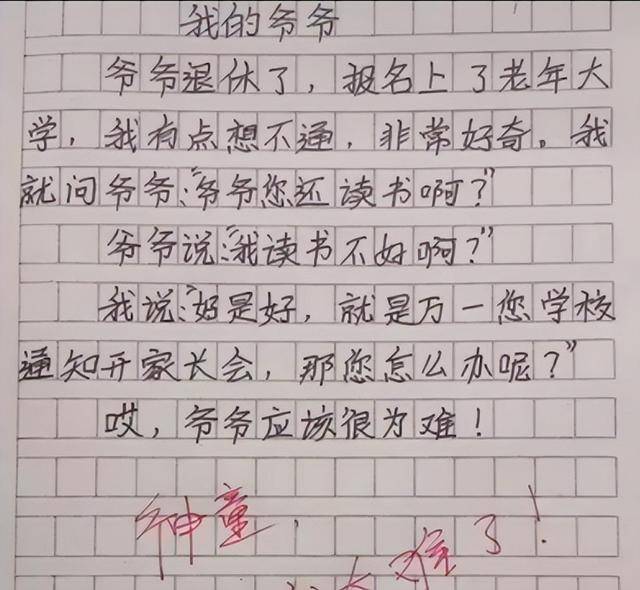 我的爷爷
爷爷退休了，报名上了老年大
学，我有点想不通，非常好奇。我
就问爷爷：“爷爷您还读书啊？”
爷爷说：“我读书不好啊？”
我说：“好是好，就是万一您学校
通知开家长会，那您怎么办呢？”
哎，爷爷应该很为难！
神童，
难了！